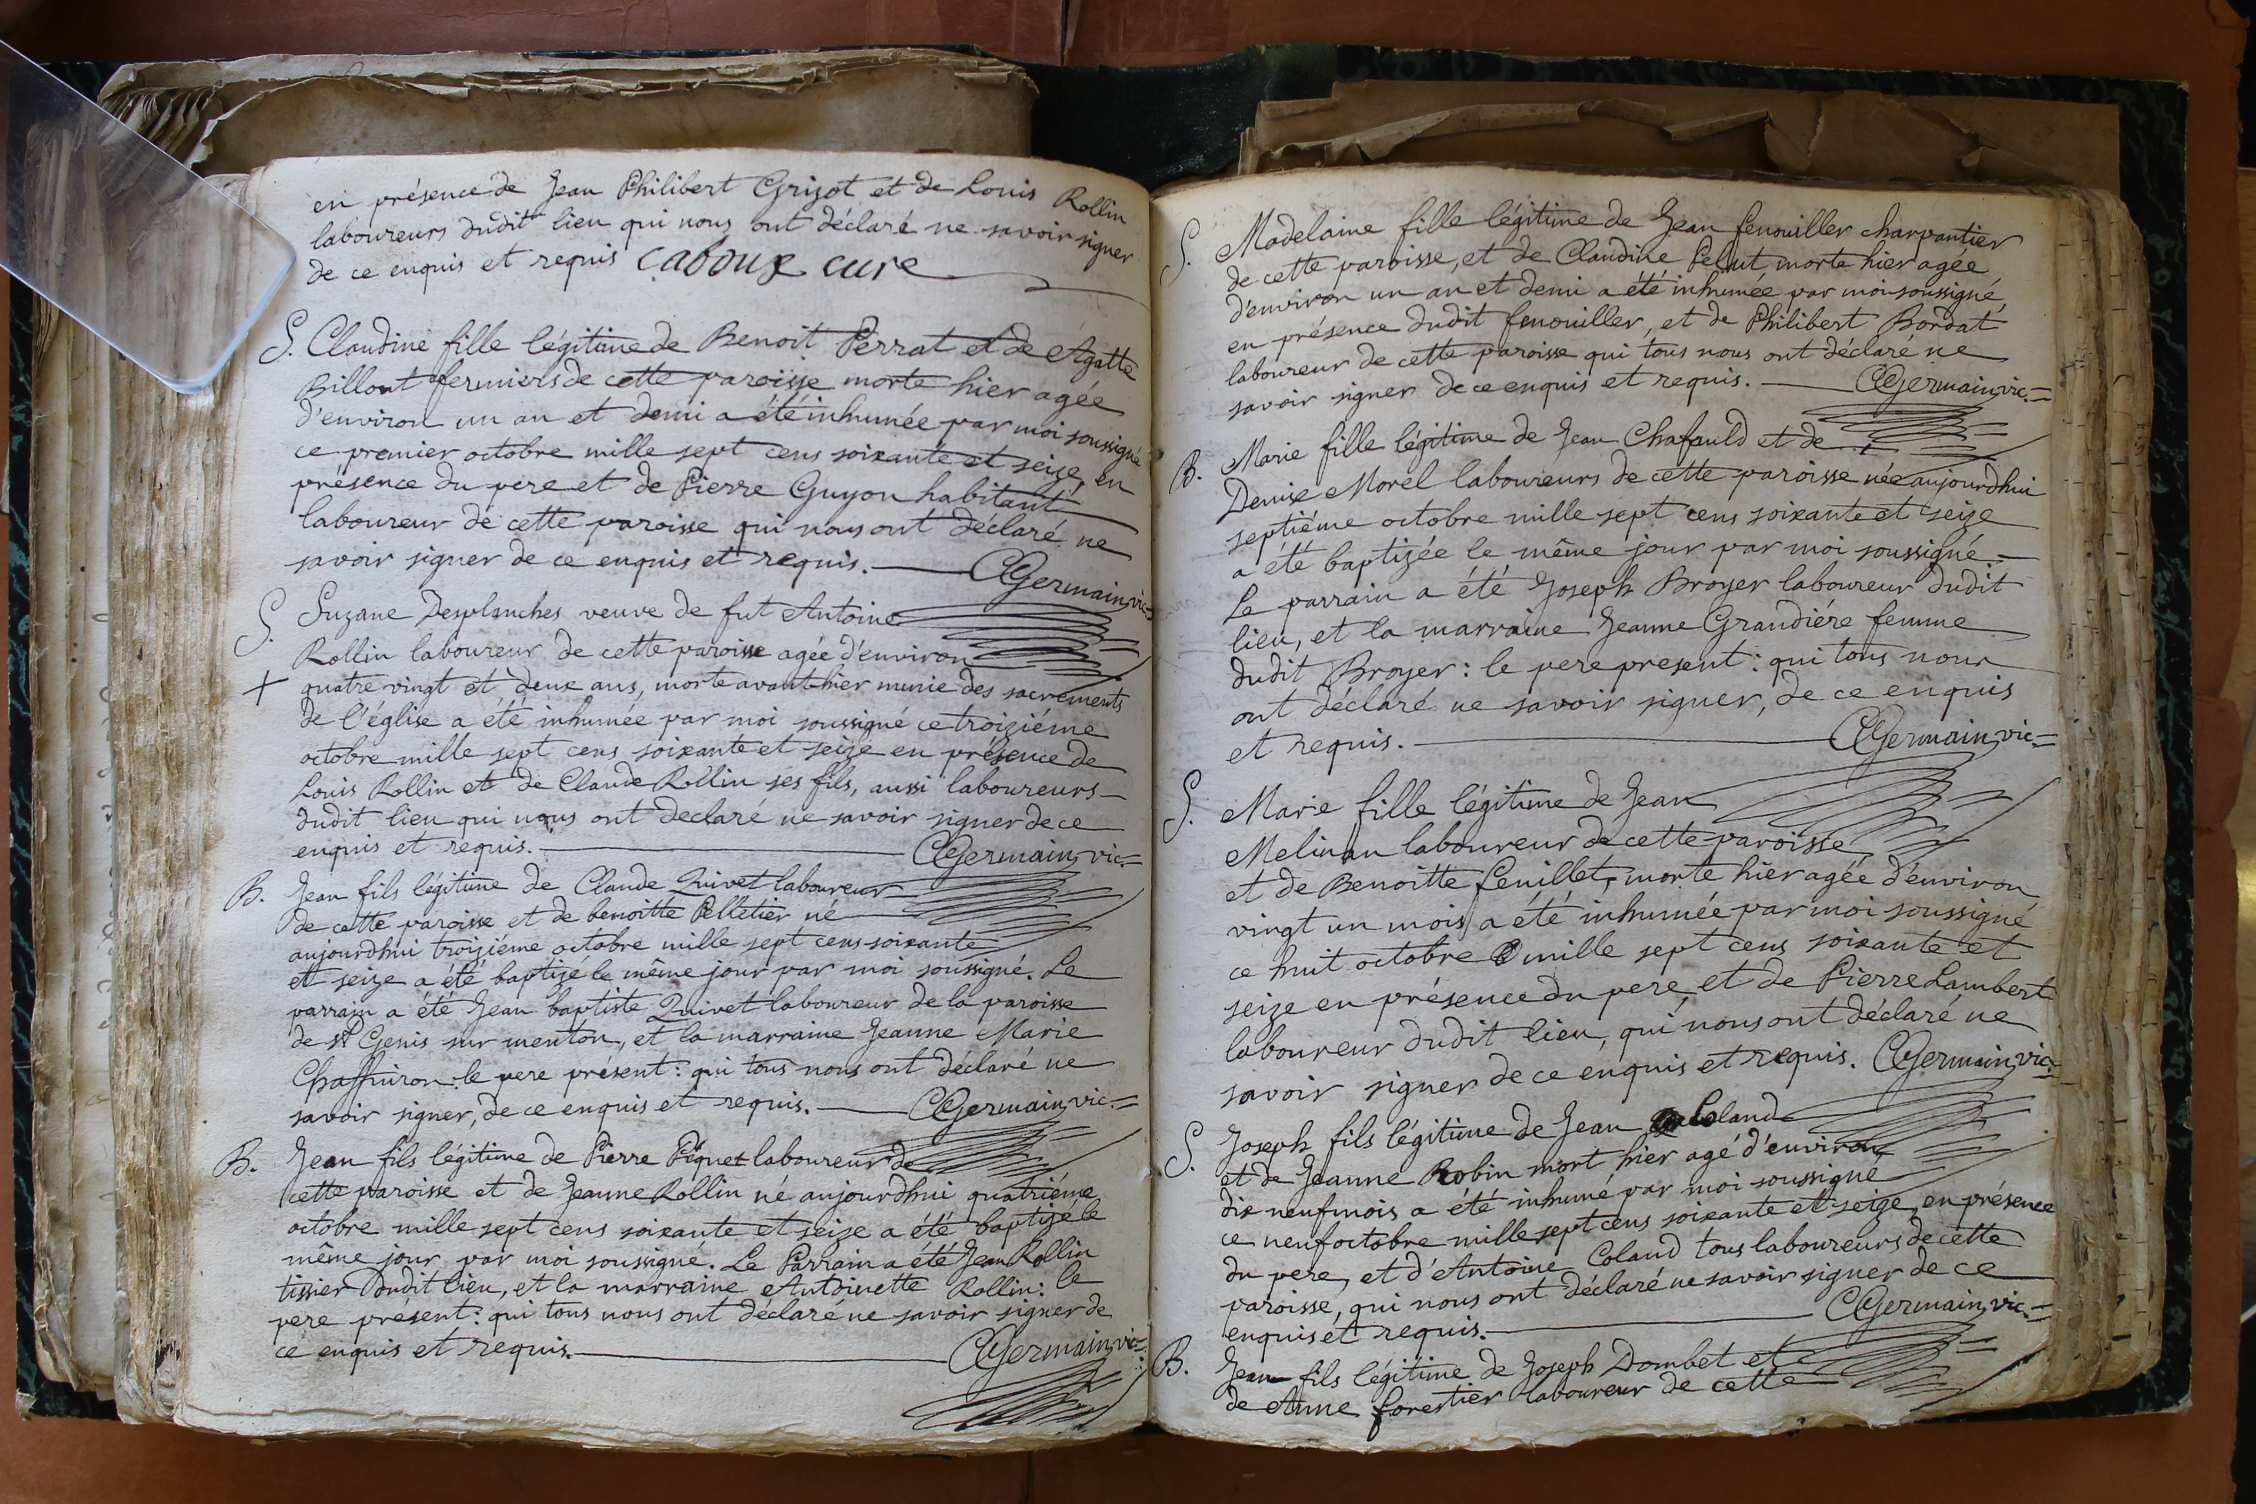 en présence de Jean Philibert Grizot et de Louis Rollin
laboureurs dudit lieu qui nous ont déclaré ne savoir signer
de ce enquis et requis Caboux curé
S. Claudine fille légitime de Benoit Perrat et de Agatte
Billout fermiers de cette paroisse morte hier agée
d'environ un an et demi a été inhumée par moi soussigné
ce premier octobre mille sept cens soixante et seize, en
présence du pere et de Pierre Guyon habitant
laboureur de cette paroisse qui nous ont déclaré ne
savoir signer de ce enquis et requis. CGermain, vic.
S. Suzane Desplanches veuve de fut Antoine
Rollin laboureur de cette paroisse agée d'environ
+ quatre vingt et deux ans, morte avant hier munie des sacrements
de l'église a été inhumée par moi soussigné ce troiziéme
octobre mille sept cens soixante et seize en présence de
Louis Rollin et de Claude Rollin ses fils, aussi laboureurs
dudit lieu qui nous ont declaré ne savoir signer de ce
enquis et requis. CGermain, vic.
B. Jean fils légitime de Claude Quivet laboureur
de cette paroisse et de benoitte Pelletier né
aujourdhui troiziéme octobre mille sept cens soixante
et seize a été baptizé le même jour par moi soussigné. Le
parrain a été Jean baptiste Quivet laboureur de la paroisse
de st Genis sur menton, et la marraine Jeanne Marie
Chaffuiron: le pere présent: qui tous nous ont déclaré ne
savoir signer, de ce enquis et requis. CGermain, vic.
B. Jean fils légitime de Pierre Piquet laboureur de
cette paroisse et de Jeanne Rollin né aujourdhui quatriéme
octobre mille sept cens soixante et seize a été baptizé le
même jour par moi soussigné. Le Parrain a été Jean Rollin
tissier dudit lieu, et la marraine Antoinette Rollin: le
pere présent: qui tous nous ont déclaré ne savoir signer de
ce enquis et requis. CGermain, vic.
S. Madelaine fille légitime de Jean fenouiller charpantier
de cette paroisse, et de Claudine Pelut, morte hier agée
d'environ un an et demi a été inhumée par moi soussigné,
en présence dudit fenouiller, et de Philibert Bordat
laboureur de cette paroisse qui tous nous ont déclaré ne
savoir signer de ce enquis et requis. CGermain, vic.
B. Marie fille légitime de Jean Chafauld et de
Denise Morel laboureurs de cette paroisse née aujourdhui
septiéme octobre mille sept cens soixante et seize
a été baptizée le même jour par moi soussigné.
Le parrain a été Joseph Broyer laboureur dudit
lieu, et la marraine Jeanne Grandiére femme
dudit Broyer: le pere present: qui tous nous
ont déclaré ne savoir signer, de ce enquis
et requis. CGermain, vic.
S. Marie fille légitime de Jean
Melinan laboureur de cette paroisse
et de Benoitte feuillet, morte hier agée d'environ
vingt un mois, a été inhumée par moi soussigné
ce huit octobre mille sept cens soixante et
seize en présence du pere et de Pierre Lambert
laboureur dudit lieu, qui nous ont déclaré ne
savoir signer de ce enquis et requis. CGermain, vic.
S. Joseph fils légitime de Jean Coland
et de Jeanne Robin mort hier agé d'environ
dix neuf mois a été inhumé par moi soussigné
ce neuf octobre mille sept cens soixante et seize, en présence
du pere, et d'Antoine Coland tous laboureurs de cette
paroisse, qui nous ont déclaré ne savoir signer de ce
enquis et requis. CGermain, vic.
B. Jean fils légitime de Joseph Dombet et
de Anne forestier laboureur de cette